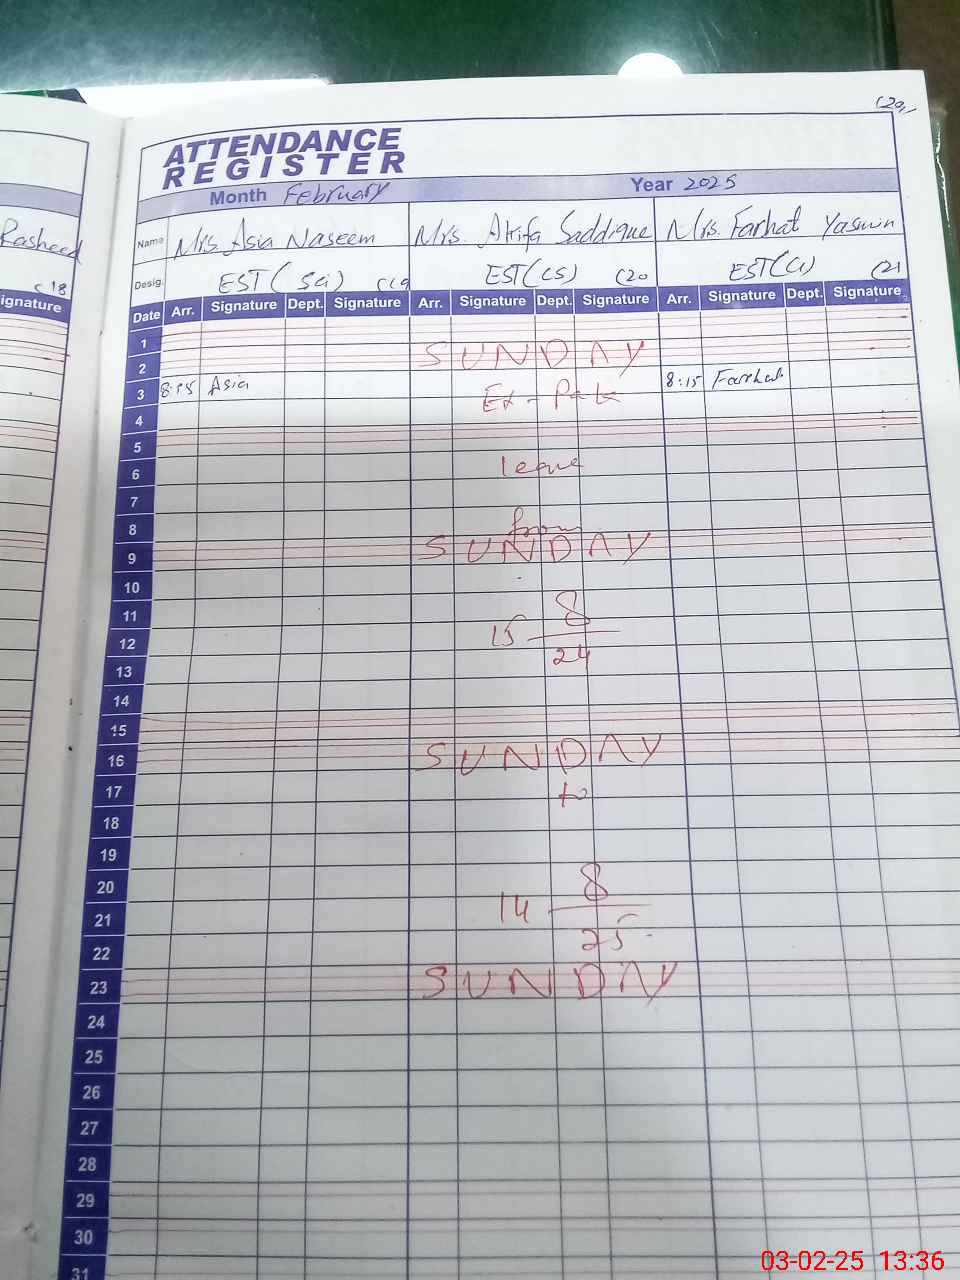 (20)
ATTENDANCE
REGISTER
Month February Year 2025
Rasheed
Name Mrs Asia Naseem Mrs. Atifa Saddique Mrs. Farhat Yasmin
(18
Desig. EST (Sci) (19 EST (CS) (20 EST (C) (21
ignature
Date Arr. Signature Dept. Signature Arr. Signature Dept. Signature Arr. Signature Dept. Signature
1
2 SUNDAY
3 8:15 Asia Ex-Pak 8:15 Farhat
4
5
6 leave
7
8 from
9 SUNDAY
10
11 8
12 15
13 24
14
15
16 SUNDAY
17 to
18
19
20 8
21 14
22 25
23 SUNDAY
24
25
26
27
28
29
30
31
03-02-25 13:36